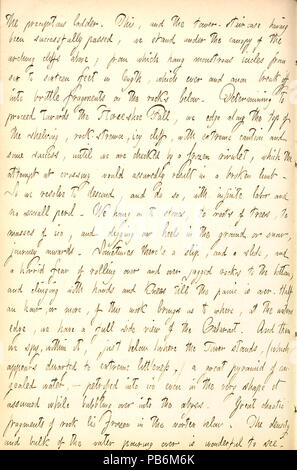 the precipitous ladder. This, and the Tower-staircase having
been successfully passed, we stand under the canopy of the
arching cliffs above, from which hang monstrous icicles from
six to sixteen feet in length, which ever and anon break off
into brittle fragments on the rocks below. Determining to
proceed towards the Horseshoe Fall, we edge along the top of
the shelving, rock-strewn, icy cliff, with extreme caution and
some success, until we are checked by a frozen rivulet, which the
attempt at crossing would assuredly result in a broken limb.
So we resolve to descend, and do so, with infinite labor and
no small peril. We hang on to stones, to roots of trees, to
masses of ice, and digging our heels in the ground or snow,
journey onwards. Sometimes there's a slip, and a slide, and
a horrid fear of rolling over and over jagged rocks to the bottom,
and clinging with hands and knees till the panic is over. Half
an hour, or more, of this work brings us to where, at the waters
edge, we have a full side view of the Cataract. And then
we spy, within it, just below where the Tower stands, (which
appears dwarfed to extreme littleness,) a great pyramid of con-
gealed water, — petrified into ice even in the very shape it
assumed while tumbling over into the abyss. Great chaotic
fragments of rock lie frozen in the vortex below. The density
and bulk of the water pouring over is wonderful to see.
alamy
Image ID: PB6M6K
www.alamy.com